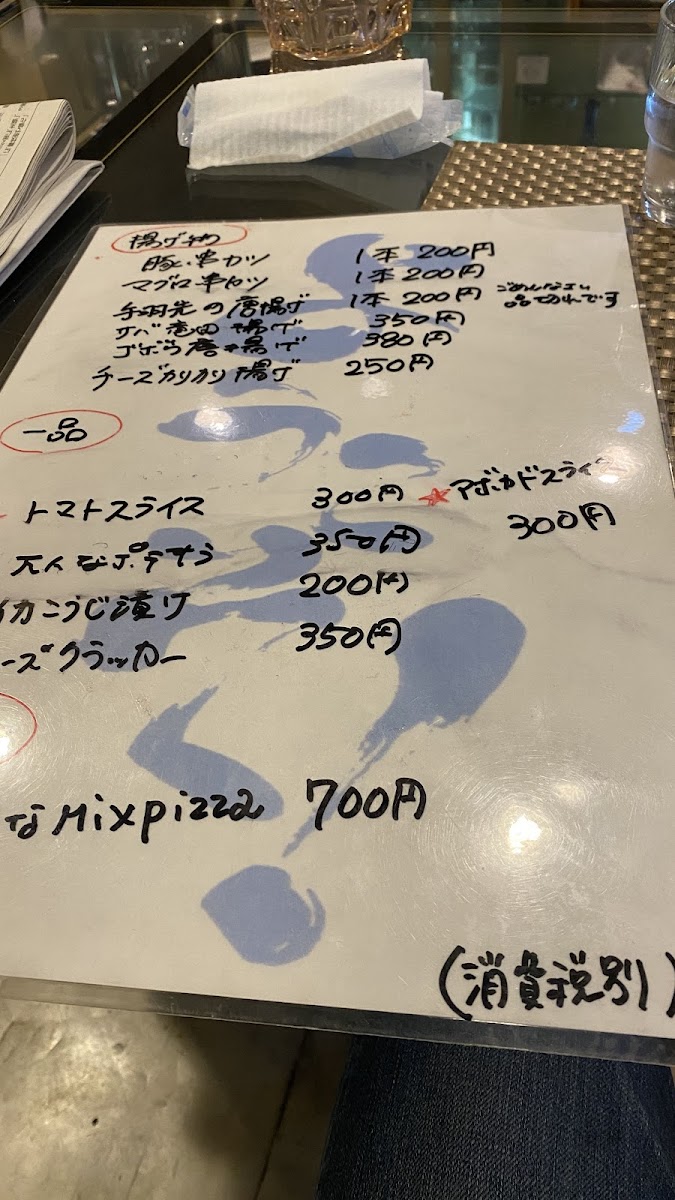 揚げ物
豚い串カツ 1本 200円
マグロ串カツ 1本 200円
手羽先の唐揚げ 1本 200円 ごめんなさい
品切れです
サバ竜田揚げ 350円
ゴボウ唐揚げ 380円
チーズカリカリ揚げ 250円
一品
トマトスライス 300円 ★アボカドスライス
300円
大人なポテサラ 350円
イカこうじ漬け 200円
ーズクラッカー 350円
なMixpizza 700円
(消費税別)